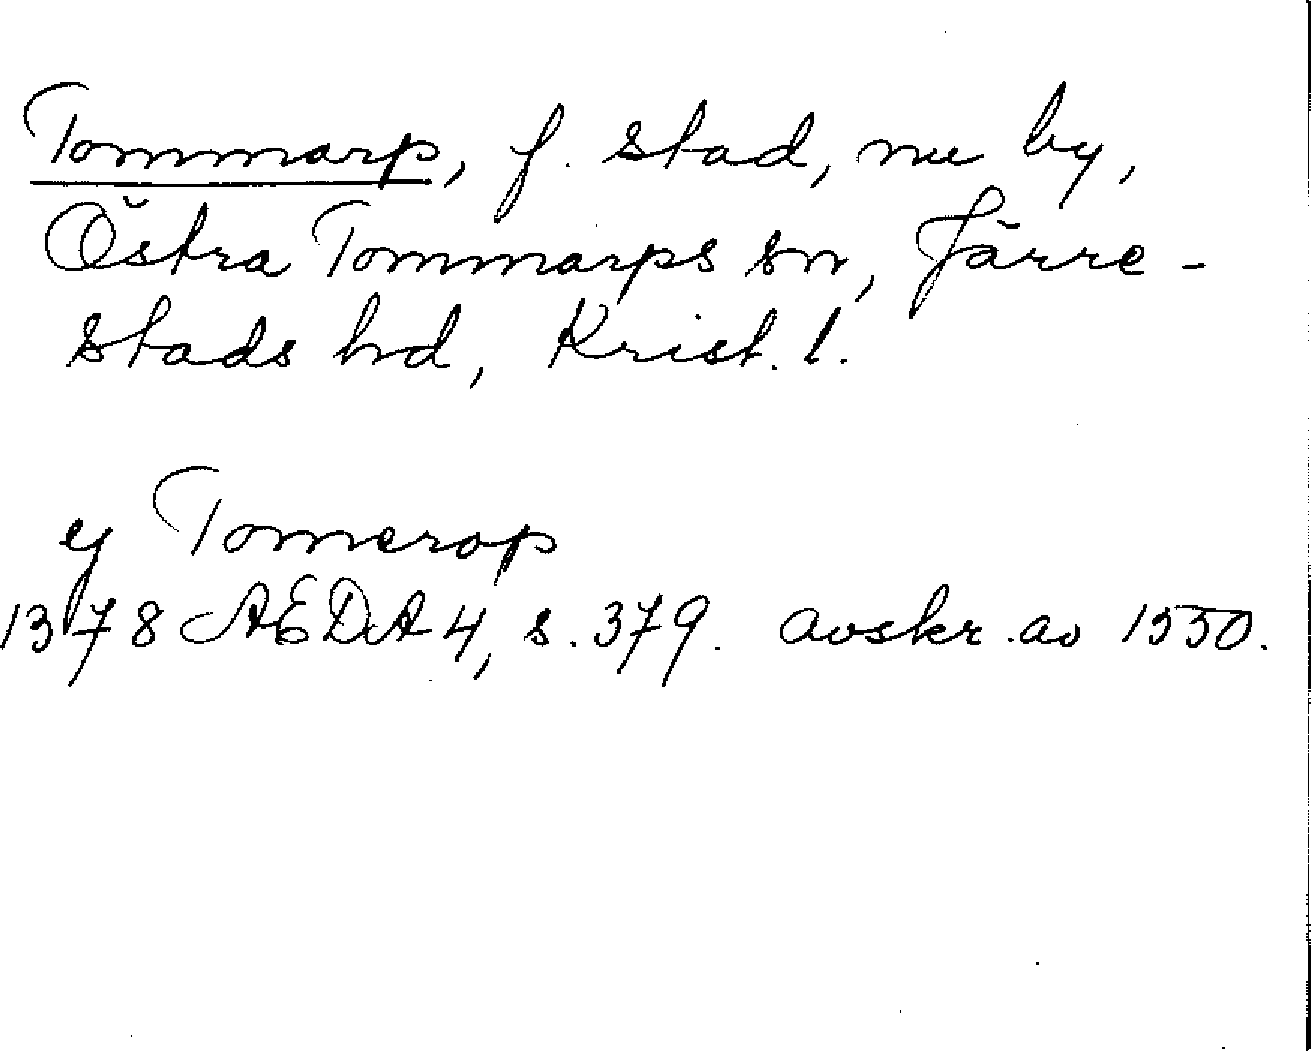 Tommarp, f. stad, nu by,
Östra Tommarps sn, Järre-
stads hd, Krist. l.
ij Tomerop
1378 AEDA 4, s. 379. avskr. av 1550.